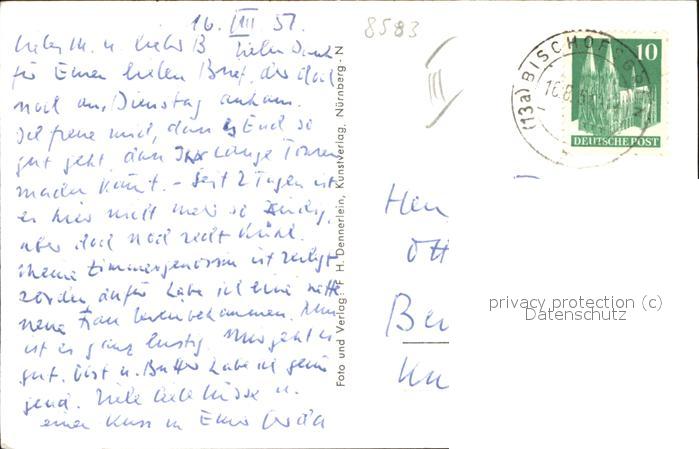 16. VIII 51.
Liebe M. u lieber B Vielen Dank
für Euren lieben Brief, der doch
noch am Dienstag ankam.
Ich freue mich, dass es Euch so
gut geht, dass Ihr lange Touren
machen könnt. - Seit 2 Tagen ist
es hier nicht mehr so windig,
aber doch noch recht kühl.
Meine Zimmergenossin ist
habe ich eine nette
neue Frau bekommen. Nun
ist es ganz lustig. Mir geht es
gut. Obst u. Butter habe ich genü
gend. Viele liebe Grüsse u.
einen Kuss v. Eurer
Foto und Verlag: F. H. Dennerlein, Kunstverlag, Nürnberg-N
8583
III
(13a) BISCHOFSGR
16.8.51
10
DEUTSCHE POST
Herr
Ott
Ber
privacy protection (c)
Datenschutz